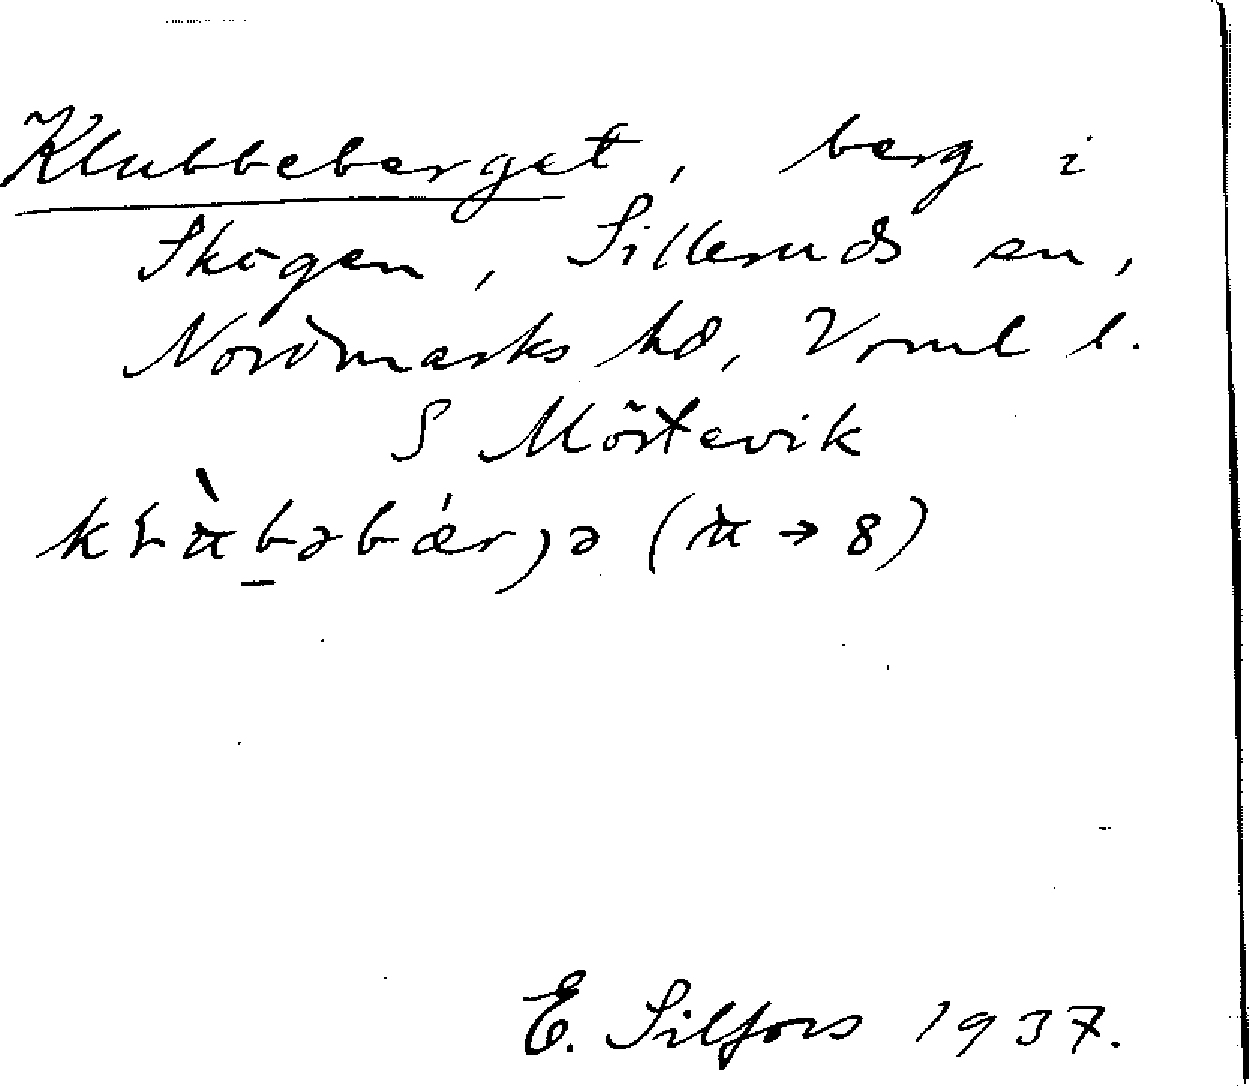 Klubbeberget, berg i
Skogen, Silleruds sn,
Nordmarks hd, Vrml l.
S Mörtevik
E. Silfors 1937.